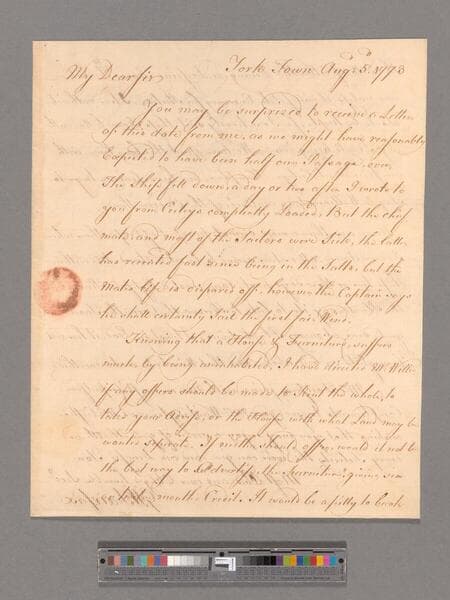 York Town Augt. 5th. 1773
My Dear sir
You may be surprised to receive a Letter
of this date from me, as we might have reasonably
Expected to have been half our Passage over,
The Ship fell down a day or two after I wrote to
you from Ceeleys compleatly Loaded, But the chief
mate and most of the Sailors were Sick, the latter
has recruited fast since being in the Salts, but the
Mates life is dispared off. however the Captain says
he shall certainly Sail the first fair Wind.
Knowing that a House & Furniture suffers
much by being uninhabited, I have directed Mr. Wills
if any offers should be made to Rent the whole, to
take your Advise, or the House with what Land may be
wanted seperate. If neither should offer, would it not be
the best way to the Furniture, giving six
or eight months Credit. It would be a pitty to break